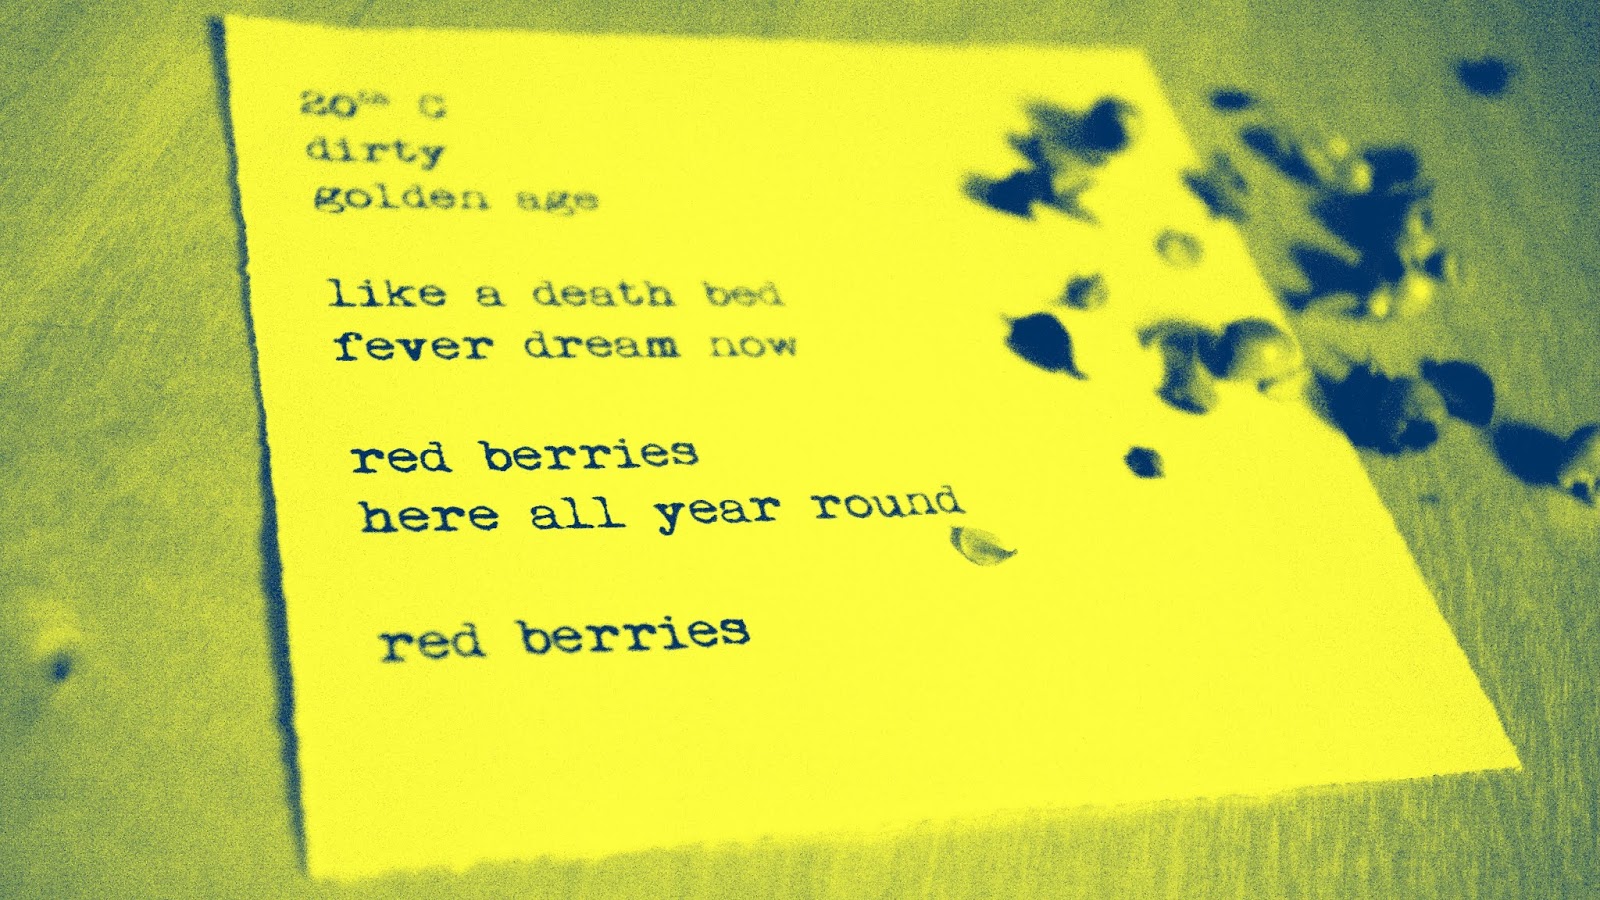 20th C
dirty
golden age
like a death bed
fever dream now
red berries
here all year round
red berries